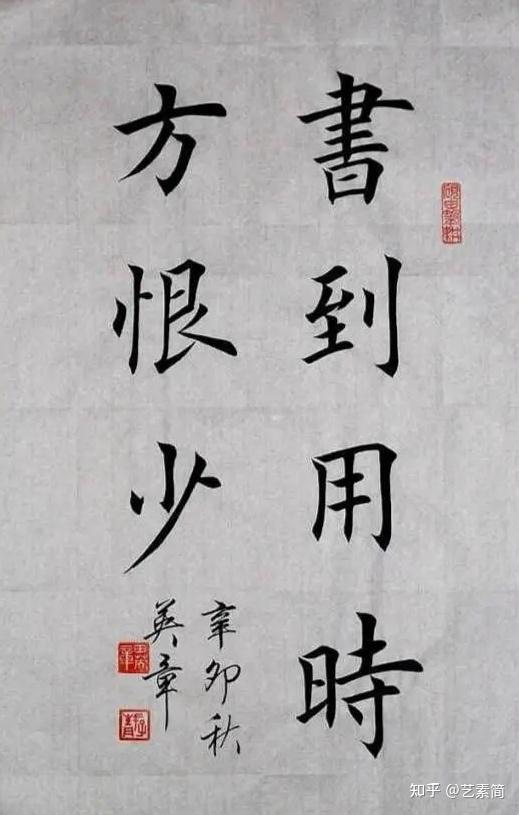 書到用時
方恨少
辛卯秋
英章
知乎 @艺素简